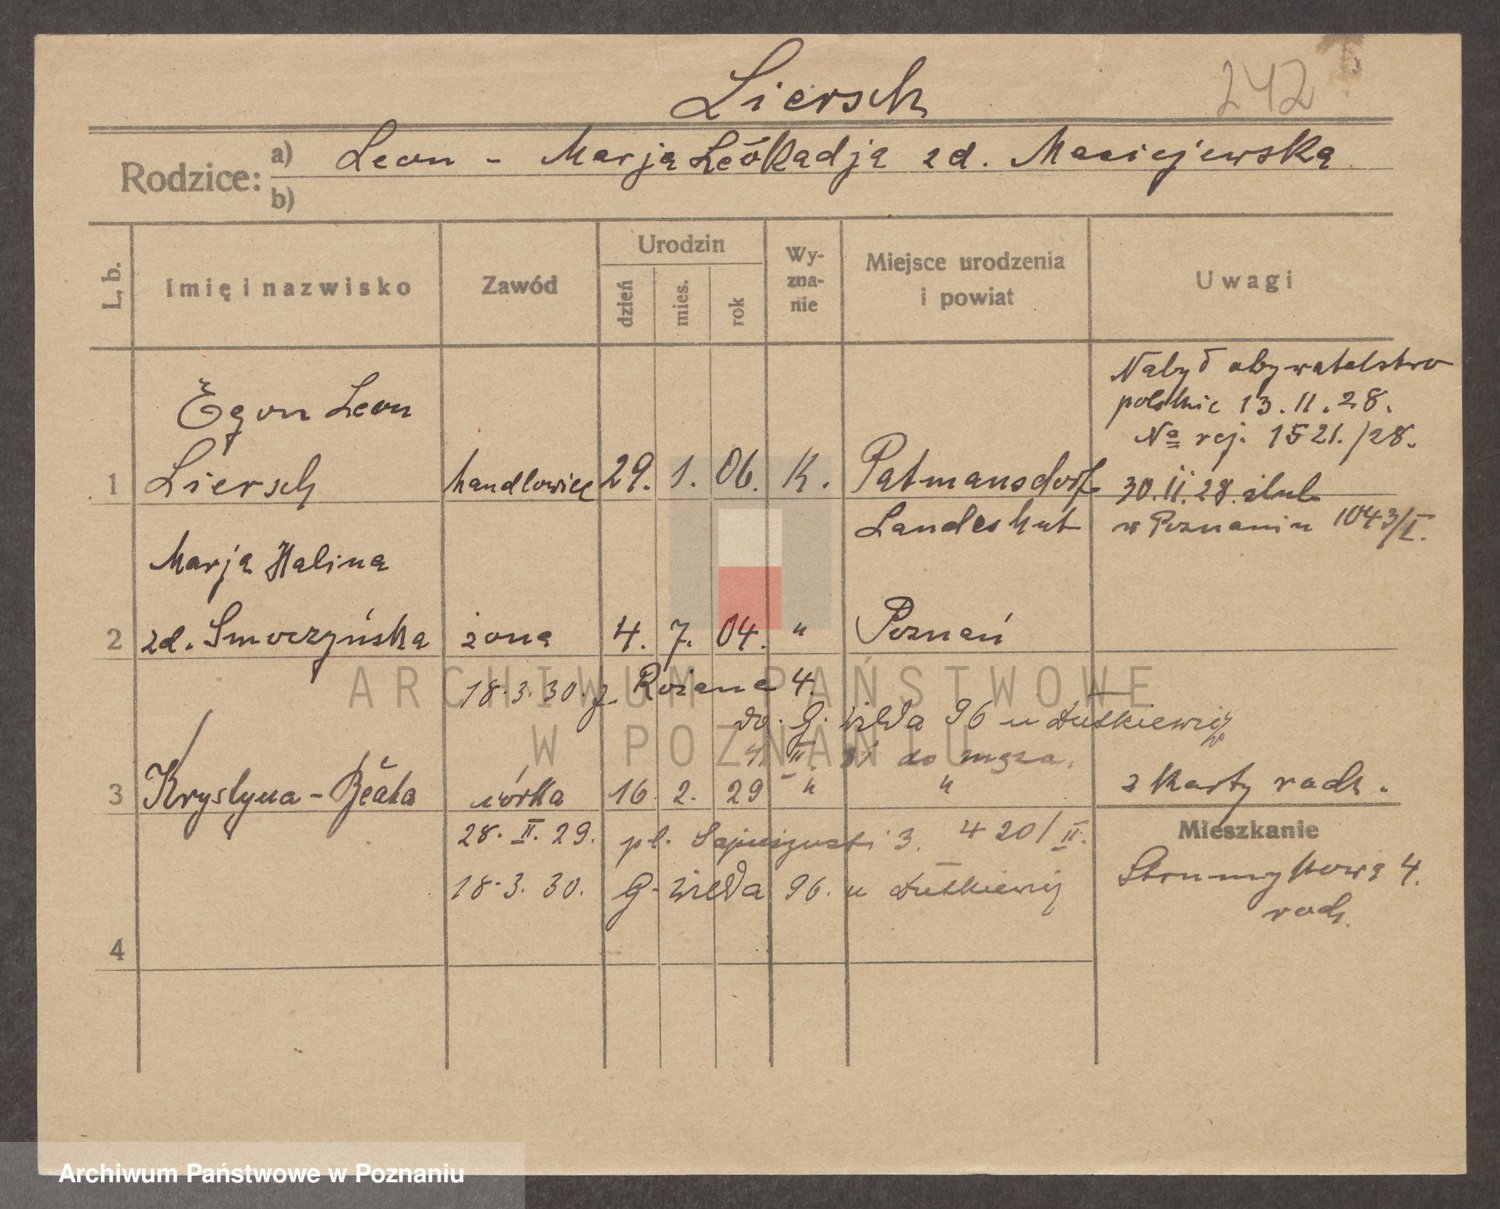 Liersch
242
Rodzice: a) Leon - Marja Leokadja zd. Maciejewska
b)
L. b. Imię i nazwisko Zawód Urodzin dzień mies. rok Wy-zna-nie Miejsce urodzenia i powiat Uwagi
Nabył obywatelstwo
polskie 13.11.28.
No rej. 1521./28.
Egon Leon
1 Liersch handlowiec 29. 1. 06. K. Patmansdorf 30.II.28. ślub
Landeshut w Poznaniu 1043/I.
Marja Halina
2 zd. Smoczyńska żona 4. 7. 04. " Poznań
18.3.30. z Różana 4.
do. G. Wilda 96 u Dutkiewicz
do męża.
3 Krystyna - Beata córka 16. 2. 29 " " z Karty rodz.
28. II. 29. pl. Sapieżyński 3. 420/II.
Mieszkanie
18.3.30. G. Wilda 96. u Dutkiewicz
Strumykowa 4.
rodz.
4
ARCHIWUM PAŃSTWOWE
W POZNANIU
Archiwum Państwowe w Poznaniu